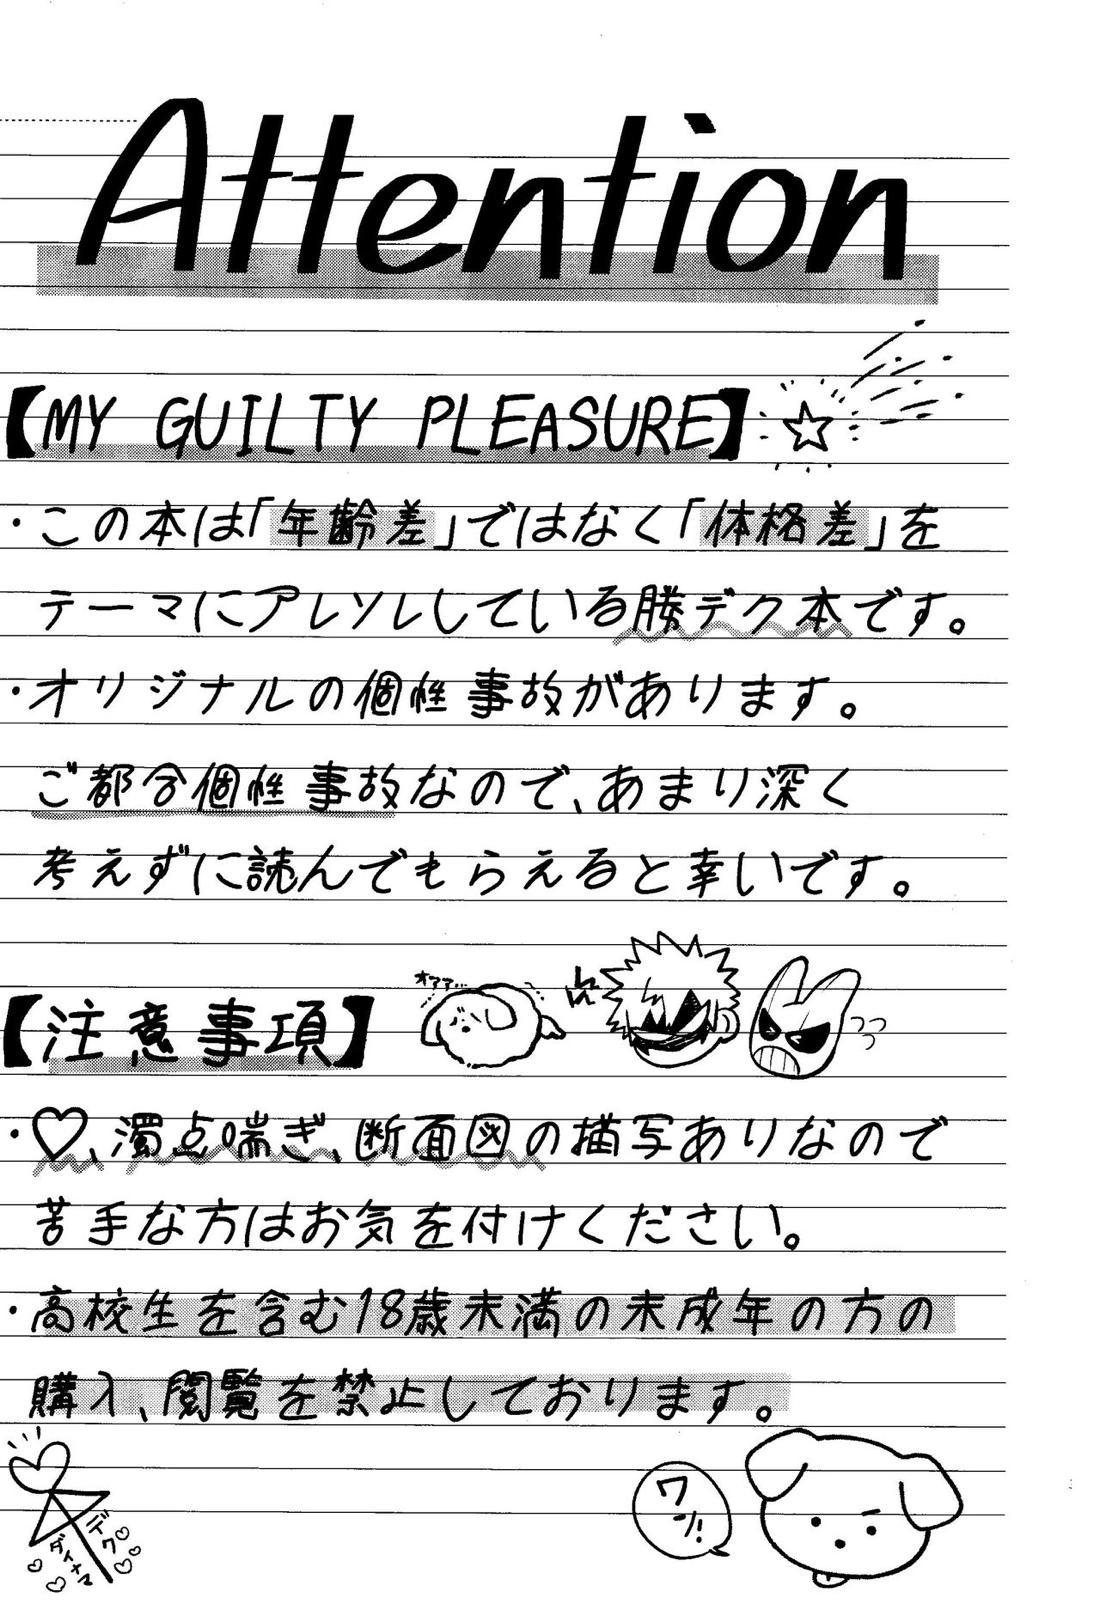 Attention
【MY GUILTY PLEASURE】
・この本は「年齢差」ではなく「体格差」を
テーマにアレソレしている勝デク本です。
・オリジナルの個性事故があります。
ご都合個性事故なので、あまり深く
考えずに読んでもらえると幸いです。
オァァ…
【注意事項】
・♡、濁点喘ぎ、断面図の描写ありなので
苦手な方はお気を付けください。
・高校生を含む18歳未満の未成年の方の
購入、閲覧を禁止しております。
ワン!
デク
ダイナマ